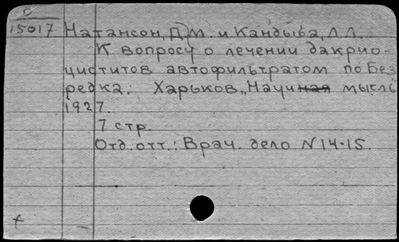 О
15017 Натансон, Д.М. и Кандыба, Л.Л.
К вопросу о лечении дакрио-
циститов автофильтратом по Без
редка. Харьков, „Научная мысль
1927.
7 стр.
Отд. отт.: Врач. дело N14-15.